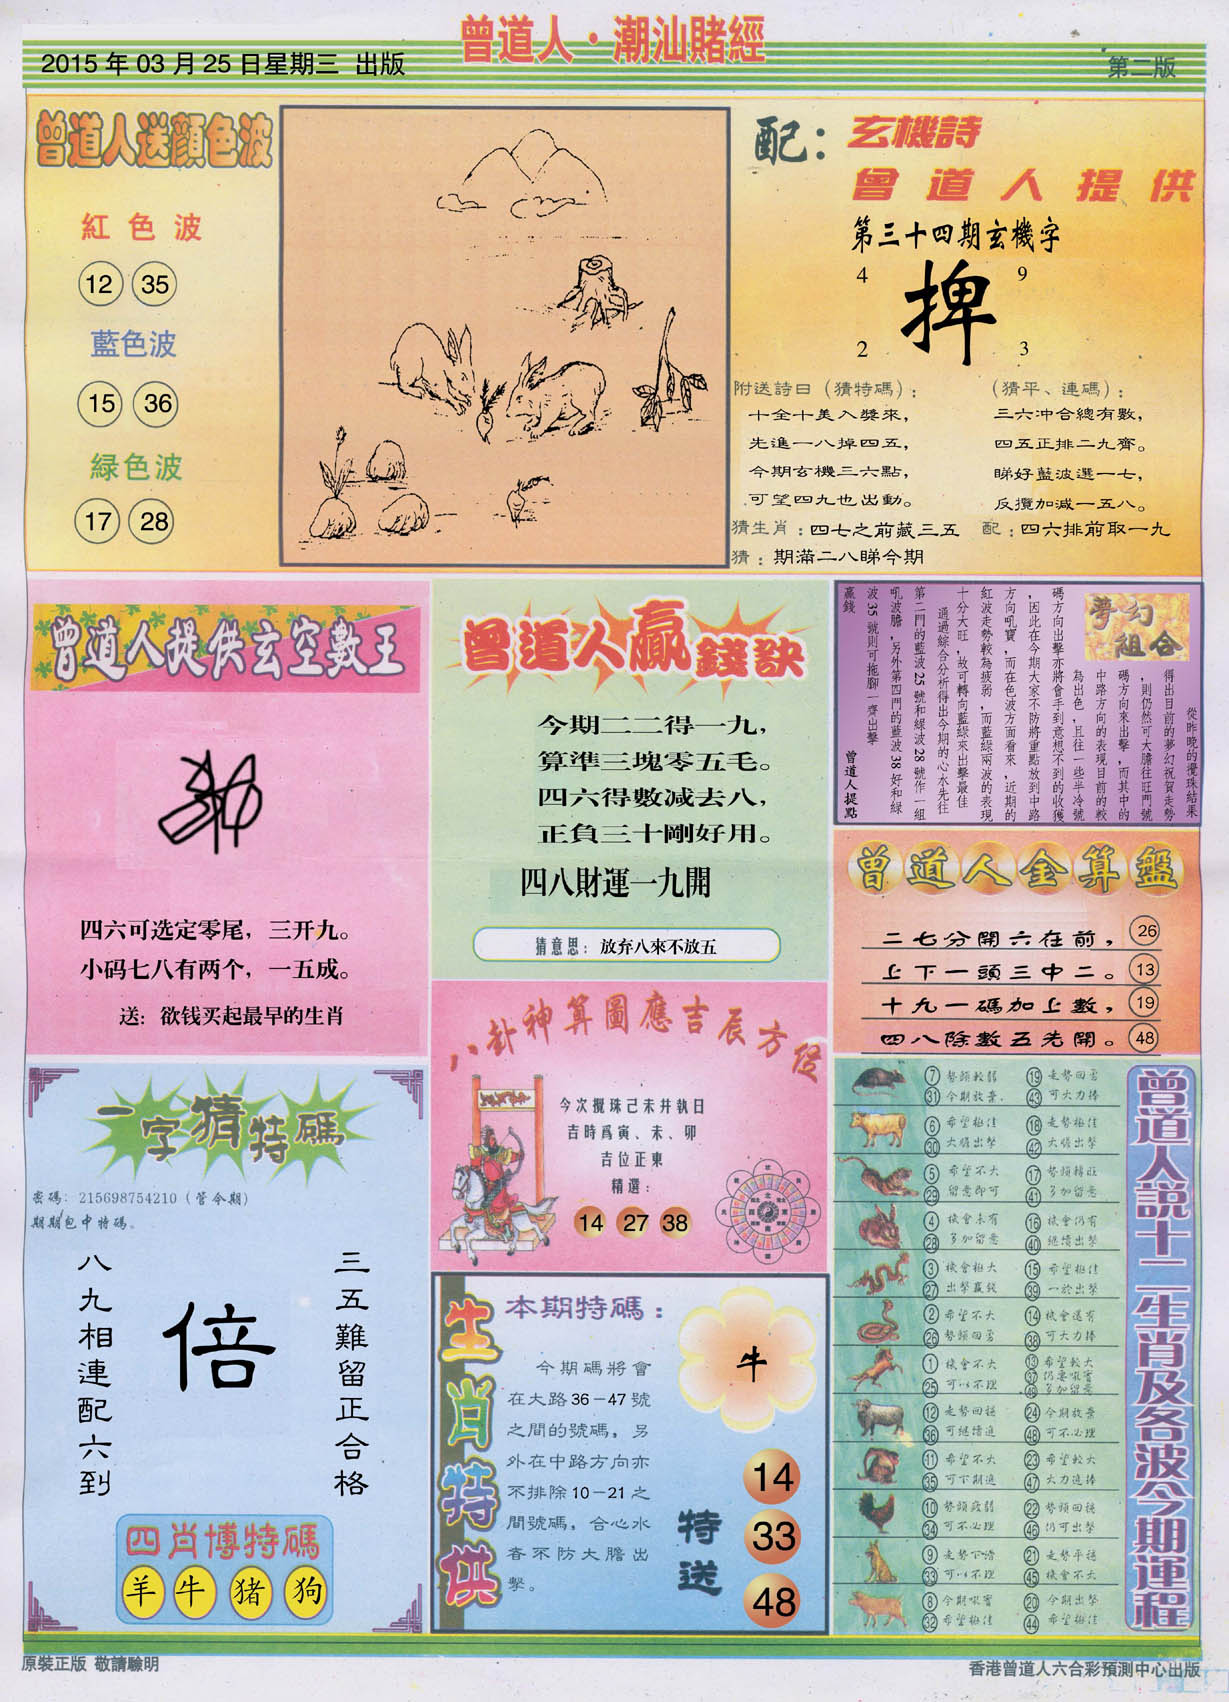 曾道人·潮汕賭經
2015年03月25日星期三 出版
第二版
曾道人送顔色波
紅色波
12 35
藍色波
15 36
緑色波
17 28
配：玄機詩
曾道人提供
第三十四期玄機字
4 9
捭
2 3
附送詩曰（猜特碼）：
十全十美入獎來，
先進一八掉四五，
今期玄機三六點，
可望四九也出動。
（猜平、連碼）：
三六冲合總有數，
四五正排二九齊。
睇好藍波選一七，
反攬加減一五八。
猜生肖：四七之前藏三五 配：四六排前取一九
猜：期滿二八睇今期
曾道人提供玄空數王
四六可选定零尾，三开九。
小码七八有两个，一五成。
送：欲钱买起最早的生肖
曾道人贏錢訣
今期二二得一九，
算準三塊零五毛。
四六得數减去八，
正負三十剛好用。
四八財運一九開
猜意思：放弃八來不放五
夢幻組合
從昨晚的攪珠結果
得出目前的夢幻祝賀走勢
，則仍然可大膽往旺門號
碼方向來出擊，而其中的
中路方向的表現目前的較
為出色，且往一些半冷號
碼方向出擊亦將會手到意想不到的收獲
，因此在今期大家不防將重點放到中路
方向吼寶，而在色波方面看來，近期的
紅波走勢較為疲弱，而藍綠兩波的表現
十分大旺，故可轉向藍綠來出擊最佳
通過綜合分析得出今期的心水先往
第二門的藍波25號和綠波28號作一組
吼波膽，另外第四門的藍波38好和綠
波35號則可拖腳一齊出擊
贏錢
曾道人提點
曾道人金算盤
二七分開六在前， 26
上下一頭三中二。 13
十九一碼加上數， 19
四八除數五先開。 48
八卦神算圖應吉辰方位
今次攪珠己未井執日
吉時爲寅、未、卯
吉位正東
精選：
14 27 38
一字猜特碼
密碼：215698754210（管今期）
期期包中特碼。
三五難留正合格
倍
八九相連配六到
四肖博特碼
羊 牛 猪 狗
生肖特供
本期特碼：
今期碼將會
在大路36－47號
之間的號碼，另
外在中路方向亦
不排除10－21之
間號碼，合心水
者不防大膽出
擊。
牛
特送
14
33
48
曾道人説十二生肖及各波今期運程
7 勢頭較弱 19 走勢回勇
31 今期放棄 43 可大力捧
6 希望極佳 18 走勢極佳
30 大膽出擊 42 大膽出擊
5 希望不大 17 勢頭轉旺
29 留意即可 41 多加留意
4 機會未有 16 機會仍有
28 多加留意 40 継續出擊
3 機會極大 15 希望極佳
27 出擊贏錢 39 一於出擊
2 希望不大 14 機會還有
26 勢頭回勇 38 可大力捧
1 機會不大 13 希望較大
25 可以不理 37 仍要吸實
49 多加留意
12 走勢回穩 24 今期放棄
36 可継續追 48 可不必理
11 希望不大 23 希望較大
35 可下期追 47 大力追捧
10 勢頭疲弱 22 勢頭回穩
34 可不必理 46 仍可出擊
9 走勢下滑 21 走勢平穩
33 可以不理 45 機會不大
8 今期吸實 20 今期出擊
32 希望極佳 44 希望極佳
原裝正版 敬請驗明
香港曾道人六合彩預測中心出版